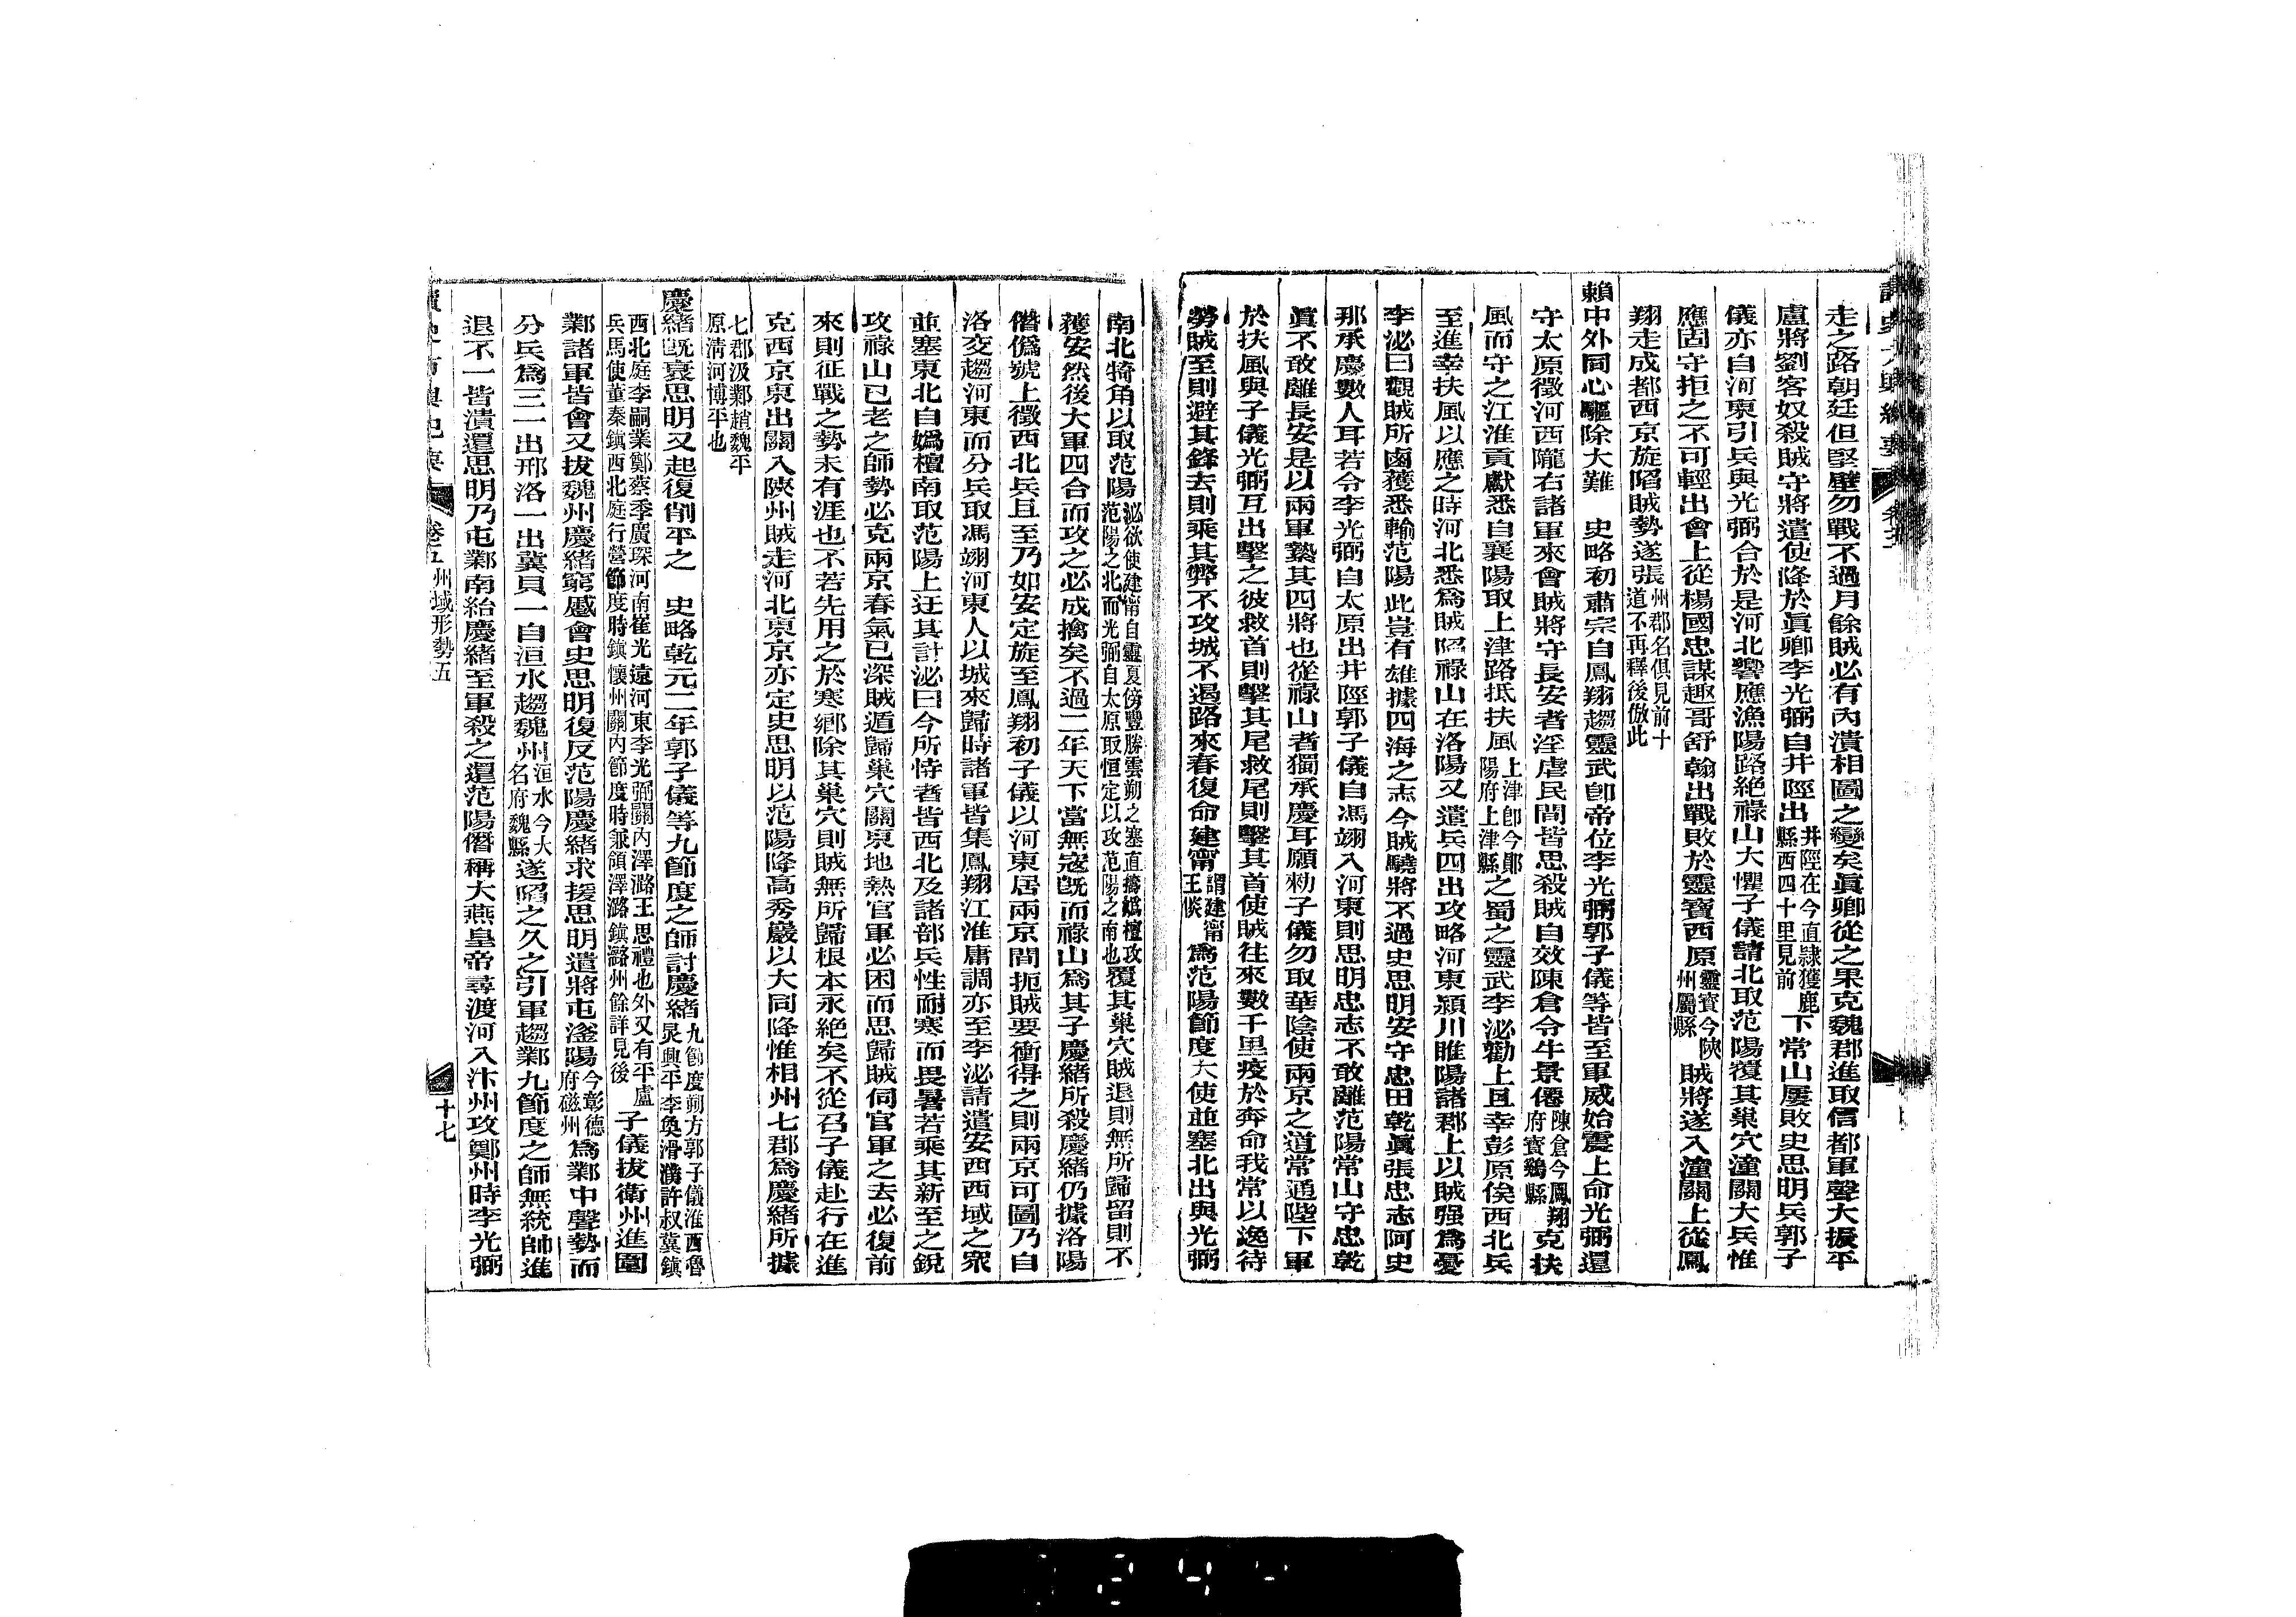 走之路朝廷但堅壁勿戰不過月餘賊必有內潰相圖之變矣眞卿從之果克魏郡進取信都軍聲大振平
盧將劉客奴殺賊守將遣使降於眞卿李光弼自井陘出井陘在今直隸獲鹿縣西四十里見前下常山屢敗史思明兵郭子
儀亦自河東引兵與光弼合於是河北響應漁陽路絕祿山大懼子儀請北取范陽覆其巢穴潼關大兵惟
應固守拒之不可輕出會上從楊國忠謀趣哥舒翰出戰敗於靈寶西原靈寶今陝州屬縣賊將遂入潼關上從鳳
翔走成都西京旋陷賊勢遂張州郡名俱見前十道不再釋後倣此
賴中外同心驅除大難　史略初肅宗自鳳翔趨靈武卽帝位李光弼郭子儀等皆至軍威始震上命光弼還
守太原徵河西隴右諸軍來會賊將守長安者淫虐民間皆思殺賊自效陳倉令牛景僊陳倉今鳳翔府寶鷄縣克扶
風而守之江淮貢獻悉自襄陽取上津路抵扶風上津卽今鄖陽府上津縣之蜀之靈武李泌勸上且幸彭原俟西北兵
至進幸扶風以應之時河北悉爲賊陷祿山在洛陽又遣兵四出攻略河東潁川睢陽諸郡上以賊强爲憂
李泌曰觀賊所鹵獲悉輸范陽此豈有雄據四海之志今賊驍將不過史思明安守忠田乾眞張忠志阿史
那承慶數人耳若令李光弼自太原出井陘郭子儀自馮翊入河東則思明忠志不敢離范陽常山守忠乾
眞不敢離長安是以兩軍縶其四將也從祿山者獨承慶耳願勑子儀勿取華陰使兩京之道常通陛下軍
於扶風與子儀光弼互出擊之彼救首則擊其尾救尾則擊其首使賊往來數千里疲於奔命我常以逸待
勞賊至則避其鋒去則乘其弊不攻城不遏路來春復命建甯謂建甯王倓爲范陽節度大使並塞北出與光弼
南北犄角以取范陽泌欲使建甯自靈夏傍豐勝雲朔之塞直擣嬀檀攻范陽之北而光弼自太原取恒定以攻范陽之南也覆其巢穴賊退則無所歸留則不
獲安然後大軍四合而攻之必成擒矣不過二年天下當無寇旣而祿山爲其子慶緒所殺慶緒仍據洛陽
僭僞號上徵西北兵且至乃如安定旋至鳳翔初子儀以河東居兩京間扼賊要衝得之則兩京可圖乃自
洛交趨河東而分兵取馮翊河東人以城來歸時諸軍皆集鳳翔江淮庸調亦至李泌請遣安西西域之衆
並塞東北自嬀檀南取范陽上迂其計泌曰今所恃者皆西北及諸部兵性耐寒而畏暑若乘其新至之銳
攻祿山已老之師勢必克兩京春氣已深賊遁歸巢穴關東地熱官軍必困而思歸賊伺官軍之去必復前
來則征戰之勢未有涯也不若先用之於寒鄉除其巢穴則賊無所歸根本永絕矣不從召子儀赴行在進
克西京東出關入陝州賊走河北東京亦定史思明以范陽降高秀巖以大同降惟相州七郡爲慶緒所據
七郡汲鄴趙魏平原淸河博平也
慶緒旣衰思明又起復削平之　史略乾元二年郭子儀等九節度之師討慶緒九節度朔方郭子儀淮西魯炅興平李奐滑濮許叔冀鎭
西北庭李嗣業鄭蔡季廣琛河南崔光遠河東李光弼關內澤潞王思禮也外又有平盧兵馬使董秦鎭西北庭行營節度時鎭懷州關內節度時兼領澤潞鎭潞州餘詳見後子儀拔衛州進圍
鄴諸軍皆會又拔魏州慶緒窮蹙會史思明復反范陽慶緒求援思明遣將屯滏陽今彰德府磁州爲鄴中聲勢而
分兵爲三一出邢洛一出冀貝一自洹水趨魏州洹水今大名府魏縣遂陷之久之引軍趨鄴九節度之師無統帥進
退不一皆潰還思明乃屯鄴南紿慶緒至軍殺之還范陽僭稱大燕皇帝尋渡河入汴州攻鄭州時李光弼
讀史方輿紀要　卷五　州域形勢五　十七